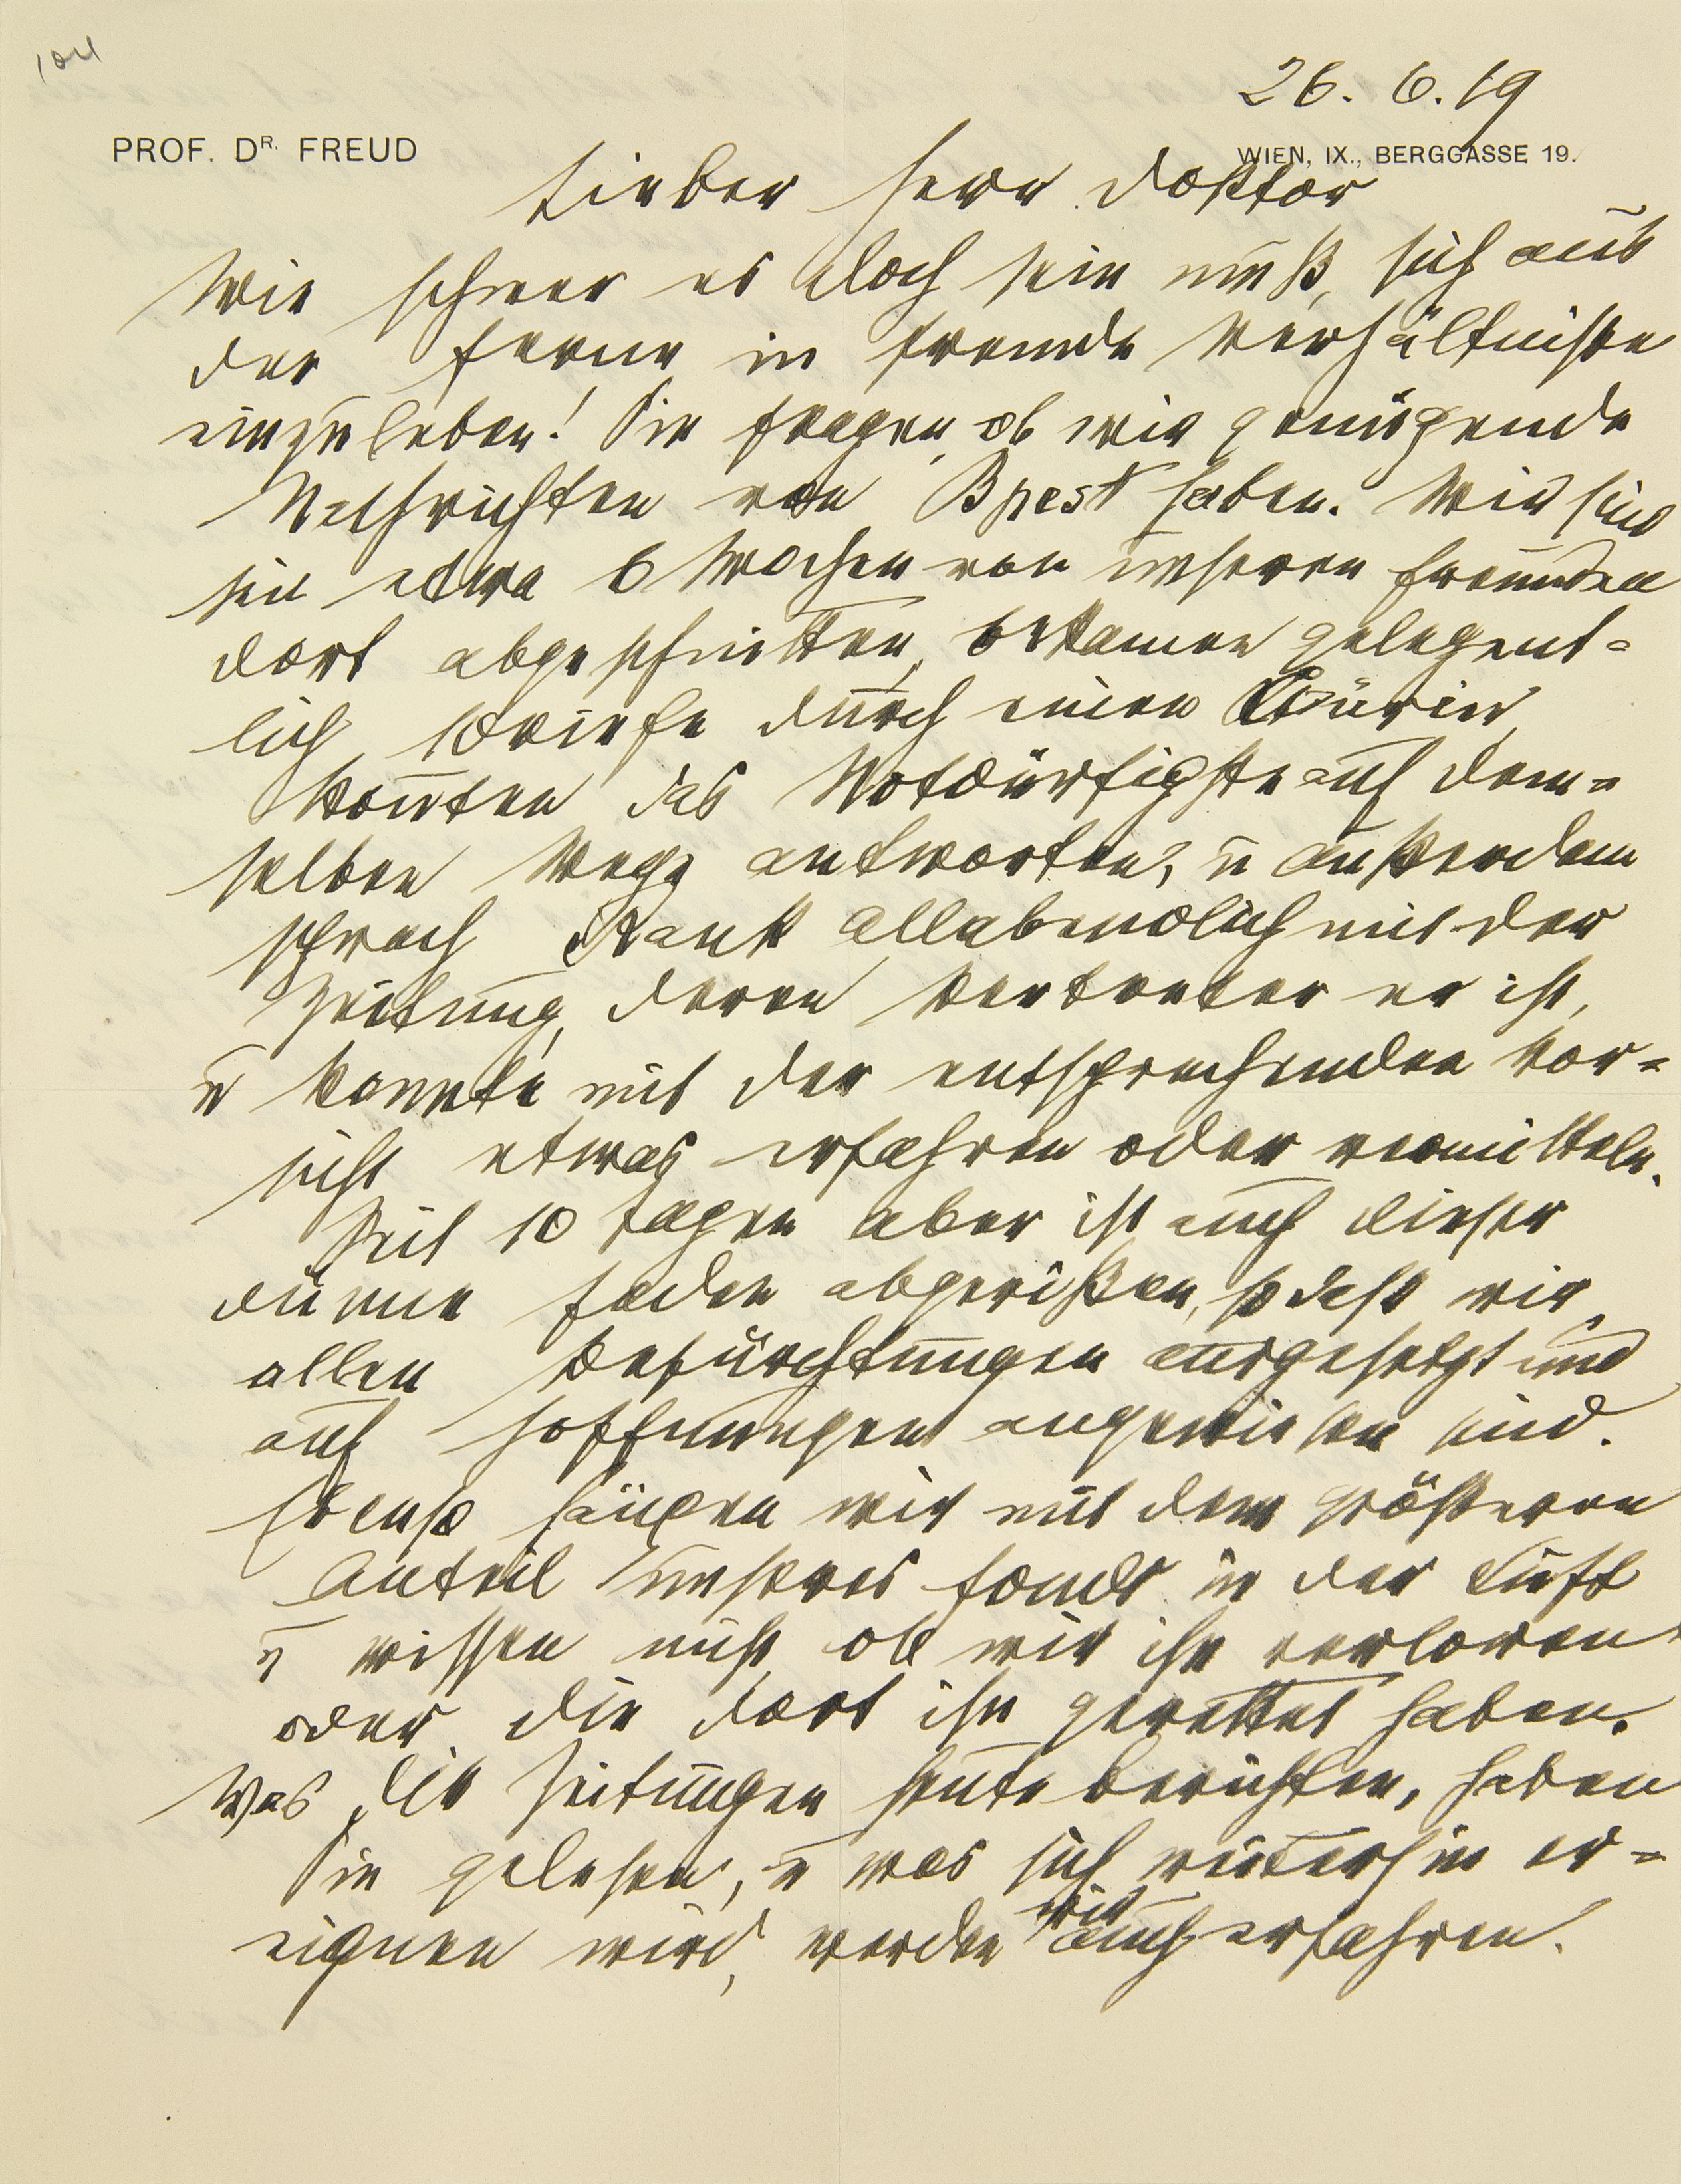 104
26. 6. 19
PROF. DR. FREUD
WIEN, IX., BERGGASSE 19.
Lieber Herr Doktor
Wie schwer es doch sein muß, sich aus
der Ferne in fremde Verhältnisse
einzuleben! Sie fragen, ob wir genügende
Nachrichten von Bpest haben. Wir sind
seit etwa 6 Wochen von unseren Freunden
dort abgeschnitten, bekamen gelegent-
lich Briefe durch einen Kurier,
konnten das Notdürftigste auf dem-
selben Wege antworten, u außerdem
sprach Rank allabendlich mit der
Zeitung, deren Vertreter er ist,
u konnte mit der entsprechenden Vor-
sicht etwas erfahren oder vermitteln.
Seit 10 Tagen aber ist auch dieser
dünne Faden abgerißen, so daß wir
allen Befürchtungen ausgesetzt und
auf Hoffnungen angewiesen sind.
Ebenso hängen wir mit dem größeren
Anteil unseres Fonds in der Luft
u wissen nicht, ob wir ihn verloren
oder die dort ihn gerettet haben.
Was die Zeitungen heute berichten, haben
Sie gelesen, u was sich weiterhin er-
eignen wird, werden wir auch erfahren.